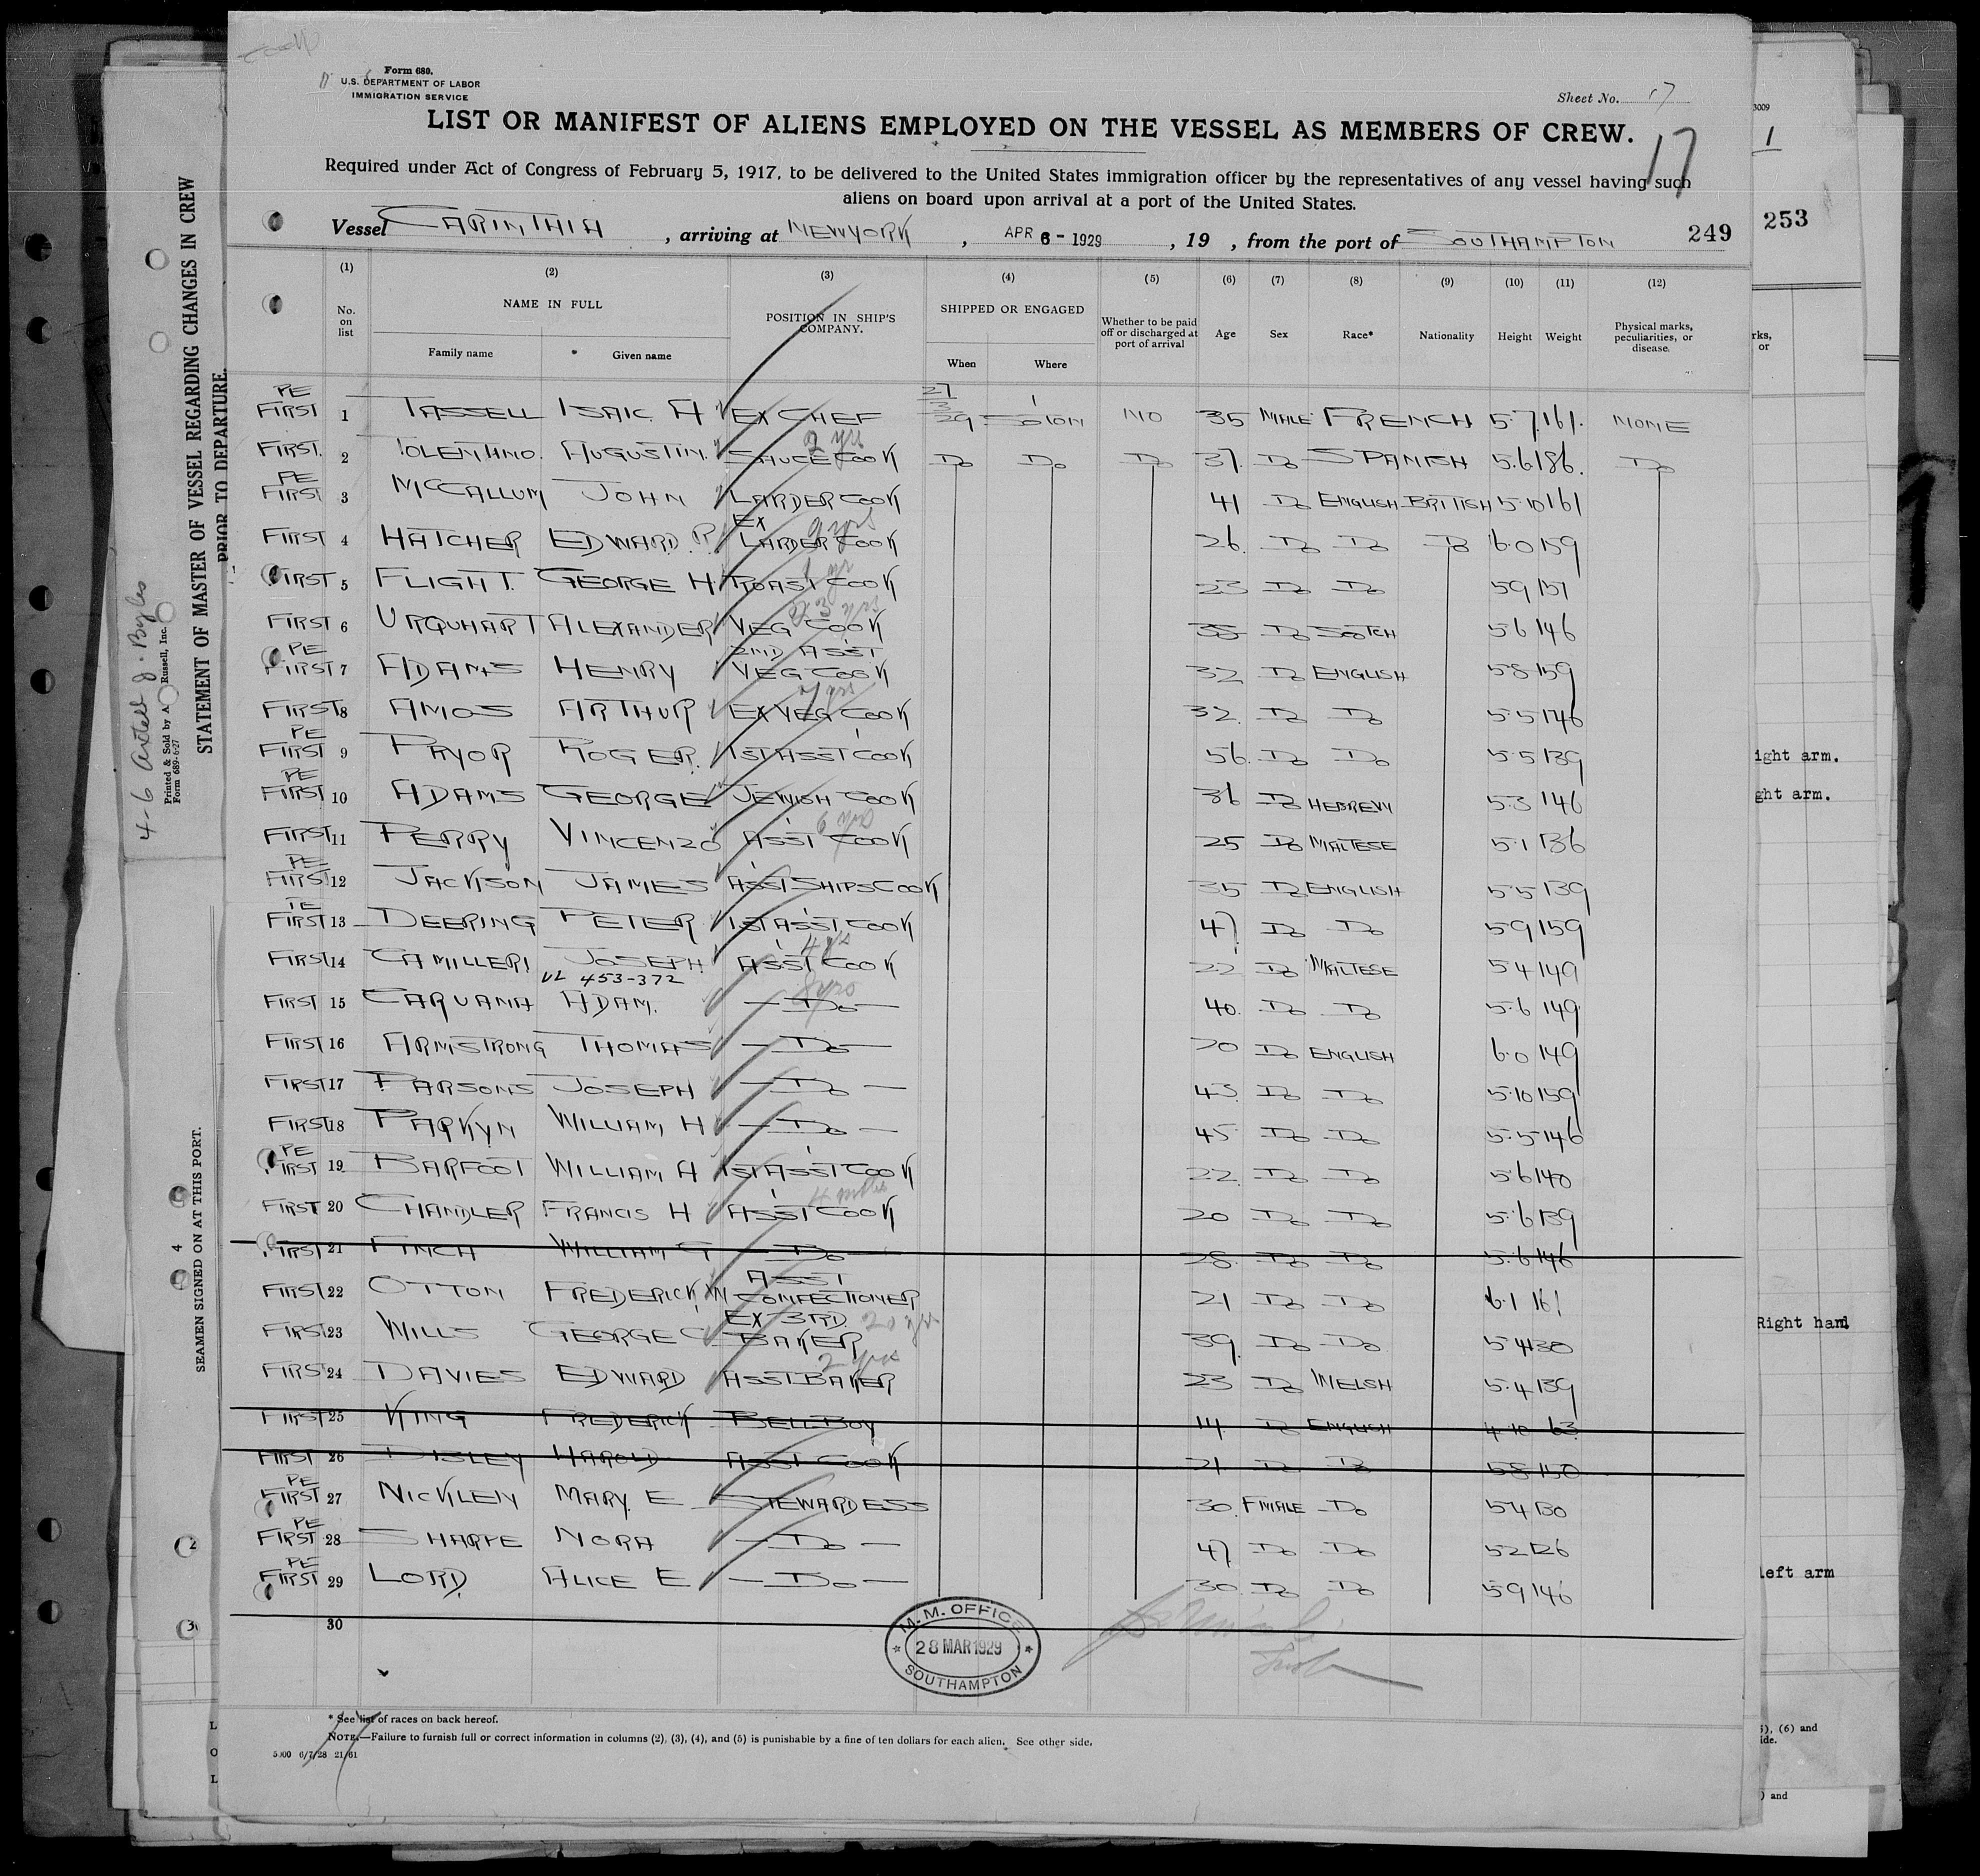 Form 680.
U.S. DEPARTMENT OF LABOR
IMMIGRATION SERVICE
Sheet No. 17
LIST OR MANIFEST OF ALIENS EMPLOYED ON THE VESSEL AS MEMBERS OF CREW.
17
Required under Act of Congress of February 5, 1917, to be delivered to the United States immigration officer by the representatives of any vessel having such
aliens on board upon arrival at a port of the United States.
Vessel CARINTHIA, arriving at NEW YORK, APR 6 - 1929, 19 , from the port of SOUTHAMPTON 249
(1) (2) (3) (4) (5) (6) (7) (8) (9) (10) (11) (12)
No. on list NAME IN FULL Family name Given name POSITION IN SHIP'S COMPANY. SHIPPED OR ENGAGED When Where Whether to be paid off or discharged at port of arrival Age Sex Race* Nationality Height Weight Physical marks, peculiarities, or disease.
PE FIRST 1 TASSELL ISAIC. A EX CHEF 27 3 29 SOTON NO 35 MALE FRENCH 5.7 161. NONE
FIRST. 2 TOLENTINO. AUGUSTIN. SAUCE COOK 9 yrs Do Do Do 37. Do SPANISH 5.6 186. Do
PE FIRST 3 McCALLUM JOHN LARDER COOK 41 Do ENGLISH BRITISH 5.10 161
FIRST 4 HATCHER EDWARD. R. EX LARDER COOK 9 yrs 26. Do Do Do 6.0 159
FIRST 5 FLIGHT. GEORGE H ROAST COOK 1 yr 23 Do Do 5 9 151
FIRST 6 URQUHART ALEXANDER VEG COOK 3 yrs 35 Do SCOTCH 5 6 146
PE FIRST 7 ADAMS HENRY 2ND ASST VEG COOK 32 Do ENGLISH 5 8 159
FIRST 8 AMOS ARTHUR EX VEG COOK 7 yrs 32. Do Do 5.5 146
PE FIRST 9 PRYOR ROGER. 1ST ASST COOK 56. Do Do 5.5 139
PE FIRST 10 ADAMS GEORGE JEWISH COOK 36 Do HEBREW 5.3 146
FIRST 11 PERRY VINCENZO ASST COOK 6 yrs 25 Do MALTESE 5.1 136
PE FIRST 12 JACKSON JAMES ASST SHIPS COOK 35 Do ENGLISH 5.5 139
PE FIRST 13 DEERING PETER 1ST ASST COOK 47 Do Do 5.9 159
FIRST 14 CAMILLERI JOSEPH ASST COOK 4 yrs 22 Do MALTESE 5 4 149
VL 453-372
FIRST 15 CARUANA ADAM. Do 8 yrs 40. Do Do 5.6 149.
FIRST 16 ARMSTRONG THOMAS Do 20 Do ENGLISH 6.0 149
FIRST 17 PARSONS JOSEPH Do 43. Do Do 5.10 159
FIRST 18 PARKYN WILLIAM H Do 45 Do Do 5.5 146
PE FIRST 19 BARFOOT WILLIAM A 1ST ASST COOK 22. Do Do 5 6 140
FIRST 20 CHANDLER FRANCIS H ASST COOK 4 mths 20 Do Do 5.6 139
FIRST 21 FINCH WILLIAM G Do 28. Do Do 5.6 146
FIRST 22 OTTON FREDERICK W ASST CONFECTIONER 21 Do Do 6.1 161
FIRST 23 WILLS GEORGE C EX 3RD BAKER 20 yrs 39. Do Do 5 4 130
FIRST 24 DAVIES EDWARD ASST BAKER 2 yrs 23 Do WELSH 5.4 139
FIRST 25 KING FREDERICK BELL BOY 14 Do ENGLISH 4.10 63
FIRST 26 HAROLD ASST COOK 21 Do Do 5 8 150
PE FIRST 27 NICKLEN MARY. E STEWARDESS 30. FMALE Do 5 4 130
PE FIRST 28 SHARPE NORA Do 47 Do Do 5 2 126
PE FIRST 29 LORD. ALICE E Do 30. Do Do 5 9 146
30
M.M. OFFICE
28 MAR 1929
SOUTHAMPTON
* See list of races on back hereof.
NOTE.—Failure to furnish full or correct information in columns (2), (3), (4), and (5) is punishable by a fine of ten dollars for each alien. See other side.
5000 6/7/28 21/61
STATEMENT OF MASTER OF VESSEL REGARDING CHANGES IN CREW
PRIOR TO DEPARTURE.
Printed & Sold by A Russell, Inc.
Form 689-6-27
SEAMEN SIGNED ON AT THIS PORT.
4
3009
1
253
rks,
or
ight arm.
ght arm.
Right hand
left arm
), (6) and
ide.
) and